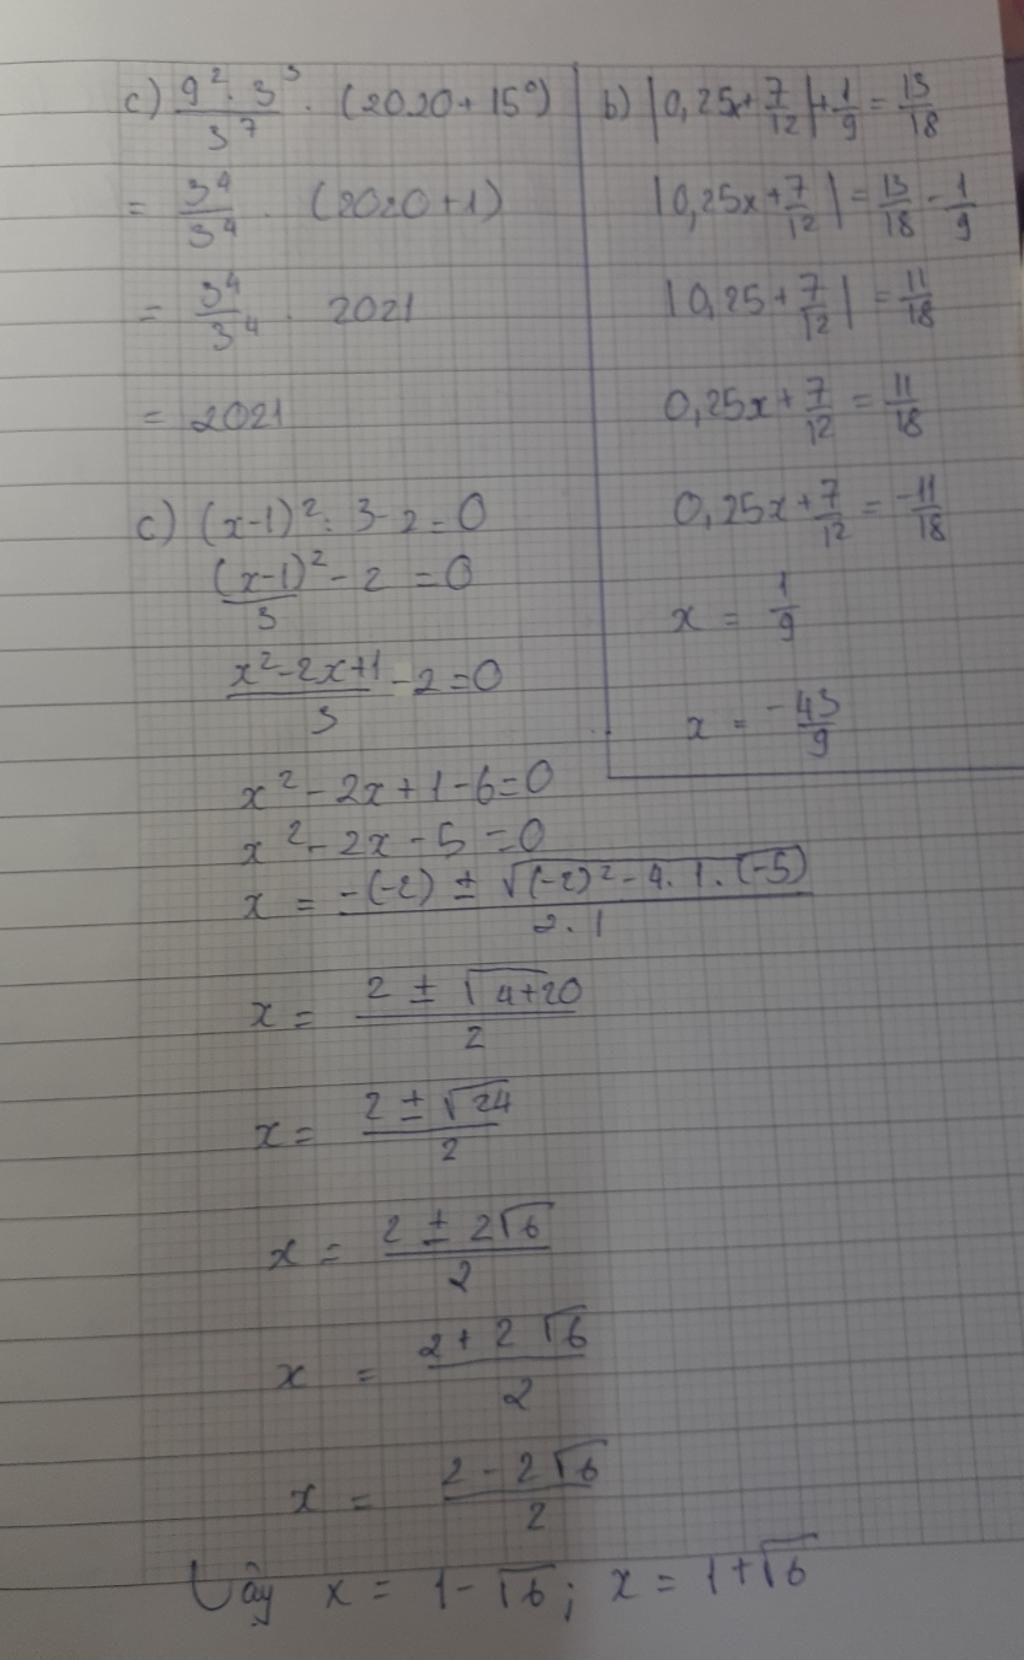 c) 9². 3³ / 3⁷ . (2020 + 15⁰)
= 3⁴ / 3⁴ . (2020 + 1)
= 3⁴ / 3⁴ . 2021
= 2021
c) (x-1)² : 3 - 2 = 0
(x-1)² / 3 - 2 = 0
x² - 2x + 1 / 3 - 2 = 0
x² - 2x + 1 - 6 = 0
x² - 2x - 5 = 0
x = -(-2) ± √(-2)² - 4. 1. (-5) / 2. 1
x = 2 ± √4+20 / 2
x = 2 ± √24 / 2
x = 2 ± 2√6 / 2
x = 2 + 2√6 / 2
x = 2 - 2√6 / 2
Vậy x = 1 - √6 ; x = 1 + √6
b) |0,25x + 7/12| + 1/9 = 13/18
|0,25x + 7/12| = 13/18 - 1/9
|0,25 + 7/12| = 11/18
0,25x + 7/12 = 11/18
0,25x + 7/12 = -11/18
x = 1/9
x = -43/9